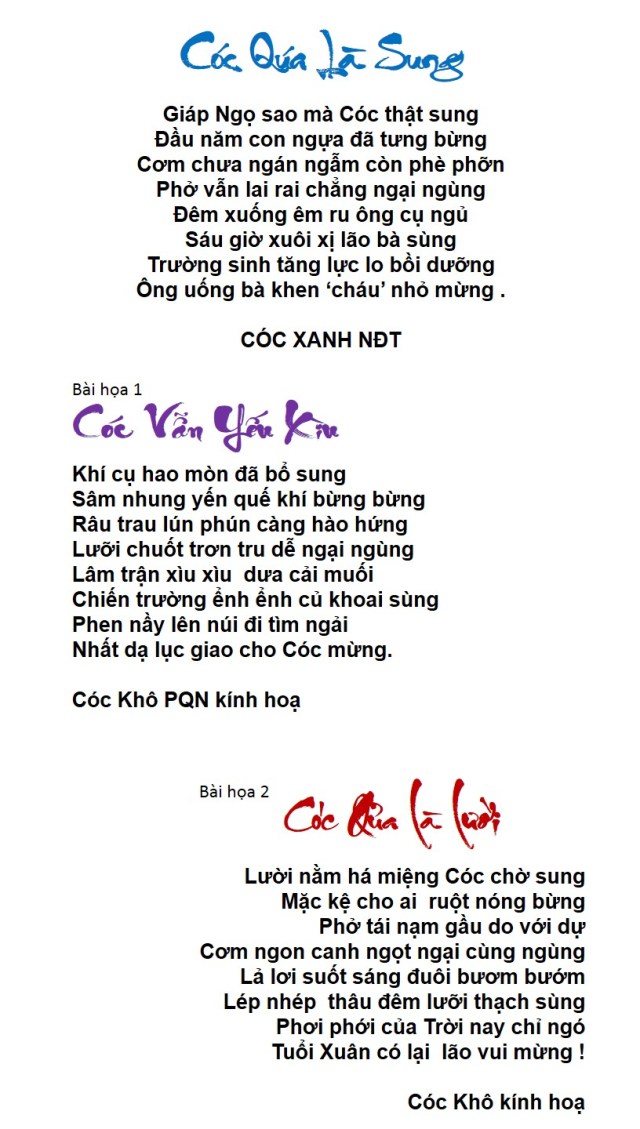 Cóc Qúa Là Sung
Giáp Ngọ sao mà Cóc thật sung
Đầu năm con ngựa đã tưng bừng
Cơm chưa ngán ngẫm còn phè phỡn
Phở vẫn lai rai chẳng ngại ngùng
Đêm xuống êm ru ông cụ ngủ
Sáu giờ xuôi xị lão bà sùng
Trường sinh tăng lực lo bồi dưỡng
Ông uống bà khen ‘cháu’ nhỏ mừng .
CÓC XANH NĐT
Bài họa 1
Cóc Vẫn Yếu Xìu
Khí cụ hao mòn đã bổ sung
Sâm nhung yến quế khí bừng bừng
Râu trau lún phún càng hào hứng
Lưỡi chuốt trơn tru dễ ngại ngùng
Lâm trận xìu xìu  dưa cải muối
Chiến trường ểnh ểnh củ khoai sùng
Phen nầy lên núi đi tìm ngải
Nhất dạ lục giao cho Cóc mừng.
Cóc Khô PQN kính hoạ
Bài họa 2
Cóc Qủa Là Lười
Lười nằm há miệng Cóc chờ sung
Mặc kệ cho ai  ruột nóng bừng
Phở tái nạm gầu do với dự
Cơm ngon canh ngọt ngại cùng ngùng
Lả lơi suốt sáng đuôi bươm bướm
Lép nhép  thâu đêm lưỡi thạch sùng
Phơi phới của Trời nay chỉ ngó
Tuổi Xuân có lại  lão vui mừng !
Cóc Khô kính hoạ